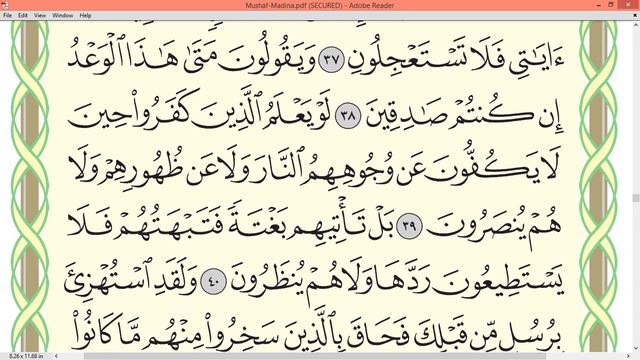 Mushaf-Madina.pdf (SECURED) - Adobe Reader
File Edit View Window Help
ءَايَٰتِي فَلَا تَسْتَعْجِلُونِ ٣٧ وَيَقُولُونَ مَتَىٰ هَٰذَا ٱلْوَعْدُ
إِن كُنتُمْ صَٰدِقِينَ ٣٨ لَوْ يَعْلَمُ ٱلَّذِينَ كَفَرُوا۟ حِينَ
لَا يَكُفُّونَ عَن وُجُوهِهِمُ ٱلنَّارَ وَلَا عَن ظُهُورِهِمْ وَلَا
هُمْ يُنصَرُونَ ٣٩ بَلْ تَأْتِيهِم بَغْتَةً فَتَبْهَتُهُمْ فَلَا
يَسْتَطِيعُونَ رَدَّهَا وَلَا هُمْ يُنظَرُونَ ٤٠ وَلَقَدِ ٱسْتُهْزِئَ
بِرُسُلٍ مِّن قَبْلِكَ فَحَاقَ بِٱلَّذِينَ سَخِرُوا۟ مِنْهُم مَّا كَانُوا۟
8.26 x 11.68 in